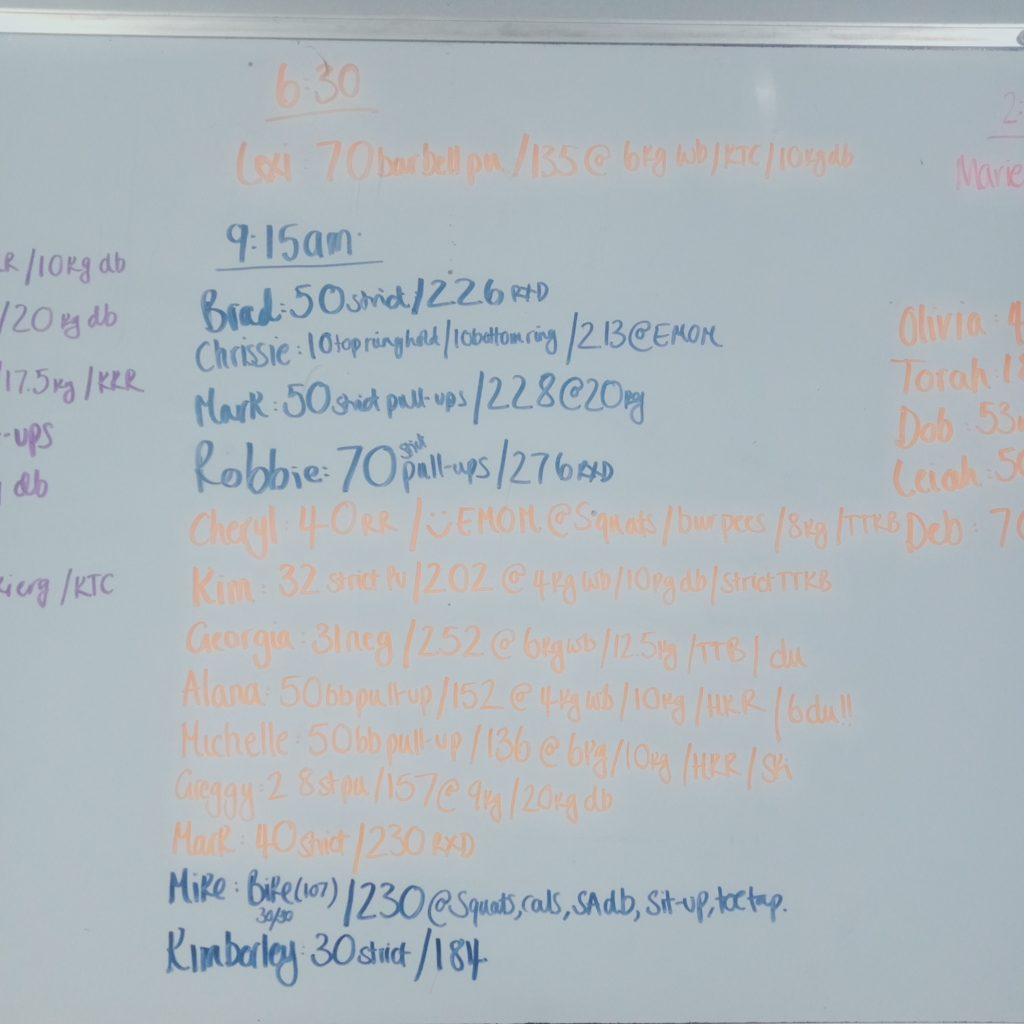 6:30
Lexi: 70 barbell pu /135 @ 6kg wb/KTC/10kg db
9:15am
Brad: 50 strict/226 RXD
Chrissie: 10 top ring hold/10 bottom ring /213@EMOM
Mark: 50 strict pull-ups /228@20kg
Robbie: 70 strict pull-ups/276 RXD
Cheryl: 40 RR /☺ EMOM @Squats/burpees/8kg/TTKB
Kim: 32 strict PU/202 @ 4kg wb/10kg db/strict TTKB
Georgia: 31 neg /252 @ 6kg wb/12.5kg/TTB/ du
Alana: 50 bb pull-up/152 @ 4kg wb/10kg/HKR /6du!!
Michelle: 50 bb pull-up /136 @ 6kg/10kg /HKR/Ski
Greggy: 28 st pu/157@ 9kg/20kg db
Mark: 40 strict/230 RXD
Mike: Bike(107) /230 @Squats, cals, SAdb, Sit-up, toe tap.
30/30
Kimberley: 30 strict /184
R/10kg db
/20kg db
/17.5kg/KKR
-ups
db
/KTC
2:
Marie
Olivia: 4
Torah: 18
Dob: 53
Leiah: 50
Deb: 70